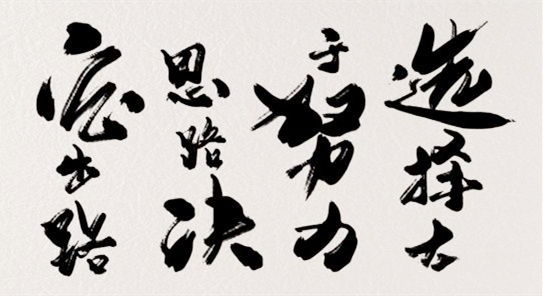 选择大
于努力
思路决
定出路